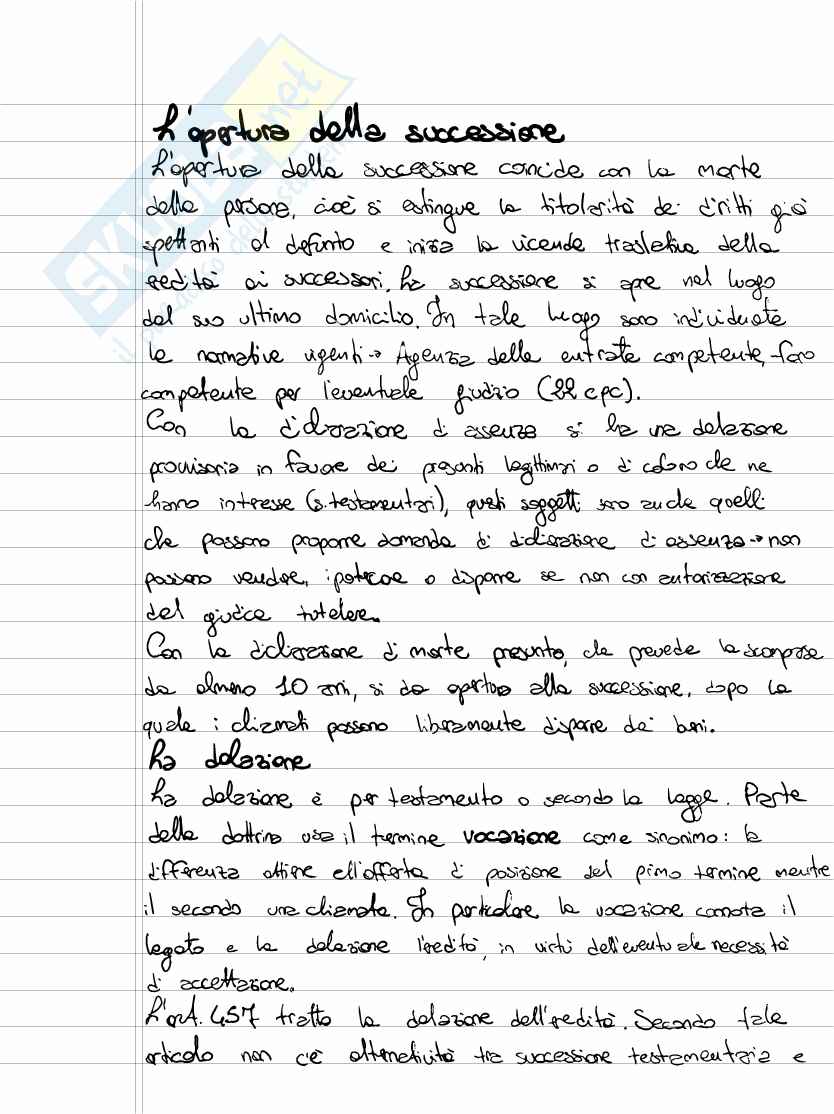 L'apertura della successione
L'apertura della successione coincide con la morte
della persona, cioè si estingue la titolarità dei diritti già
spettanti al defunto e inizia la vicenda traslativa della
eredità ai successori. La successione si apre nel luogo
del suo ultimo domicilio. In tale luogo sono individuate
le normative vigenti → Agenzia delle entrate competente, foro
competente per l'eventuale giudizio (22 cpc).
Con la dichiarazione di assenza si ha una delazione
provvisoria in favore dei presunti legittimari o di coloro che ne
hanno interesse (s. testamentari), questi soggetti sono anche quelli
che possono proporre domanda di dichiarazione di assenza → non
possono vendere, ipotecare o disporre se non con autorizzazione
del giudice tutelare.
Con la dichiarazione di morte presunta, che prevede la scomparsa
da almeno 10 anni, si da apertura alla successione, dopo la
quale i chiamati possono liberamente disporre dei beni.
La delazione
La delazione è per testamento o secondo la legge. Parte
della dottrina usa il termine vocazione come sinonimo: la
differenza attiene all'offerta di posizione del primo termine mentre
il secondo una chiamata. In particolare la vocazione connota il
legato e la delazione l'eredità, in virtù dell'eventuale necessità
di accettazione.
L'art. 457 tratta la delazione dell'eredità. Secondo tale
articolo non c'è alternatività tra successione testamentaria e
SKUOLA.net
il paradiso dello studente